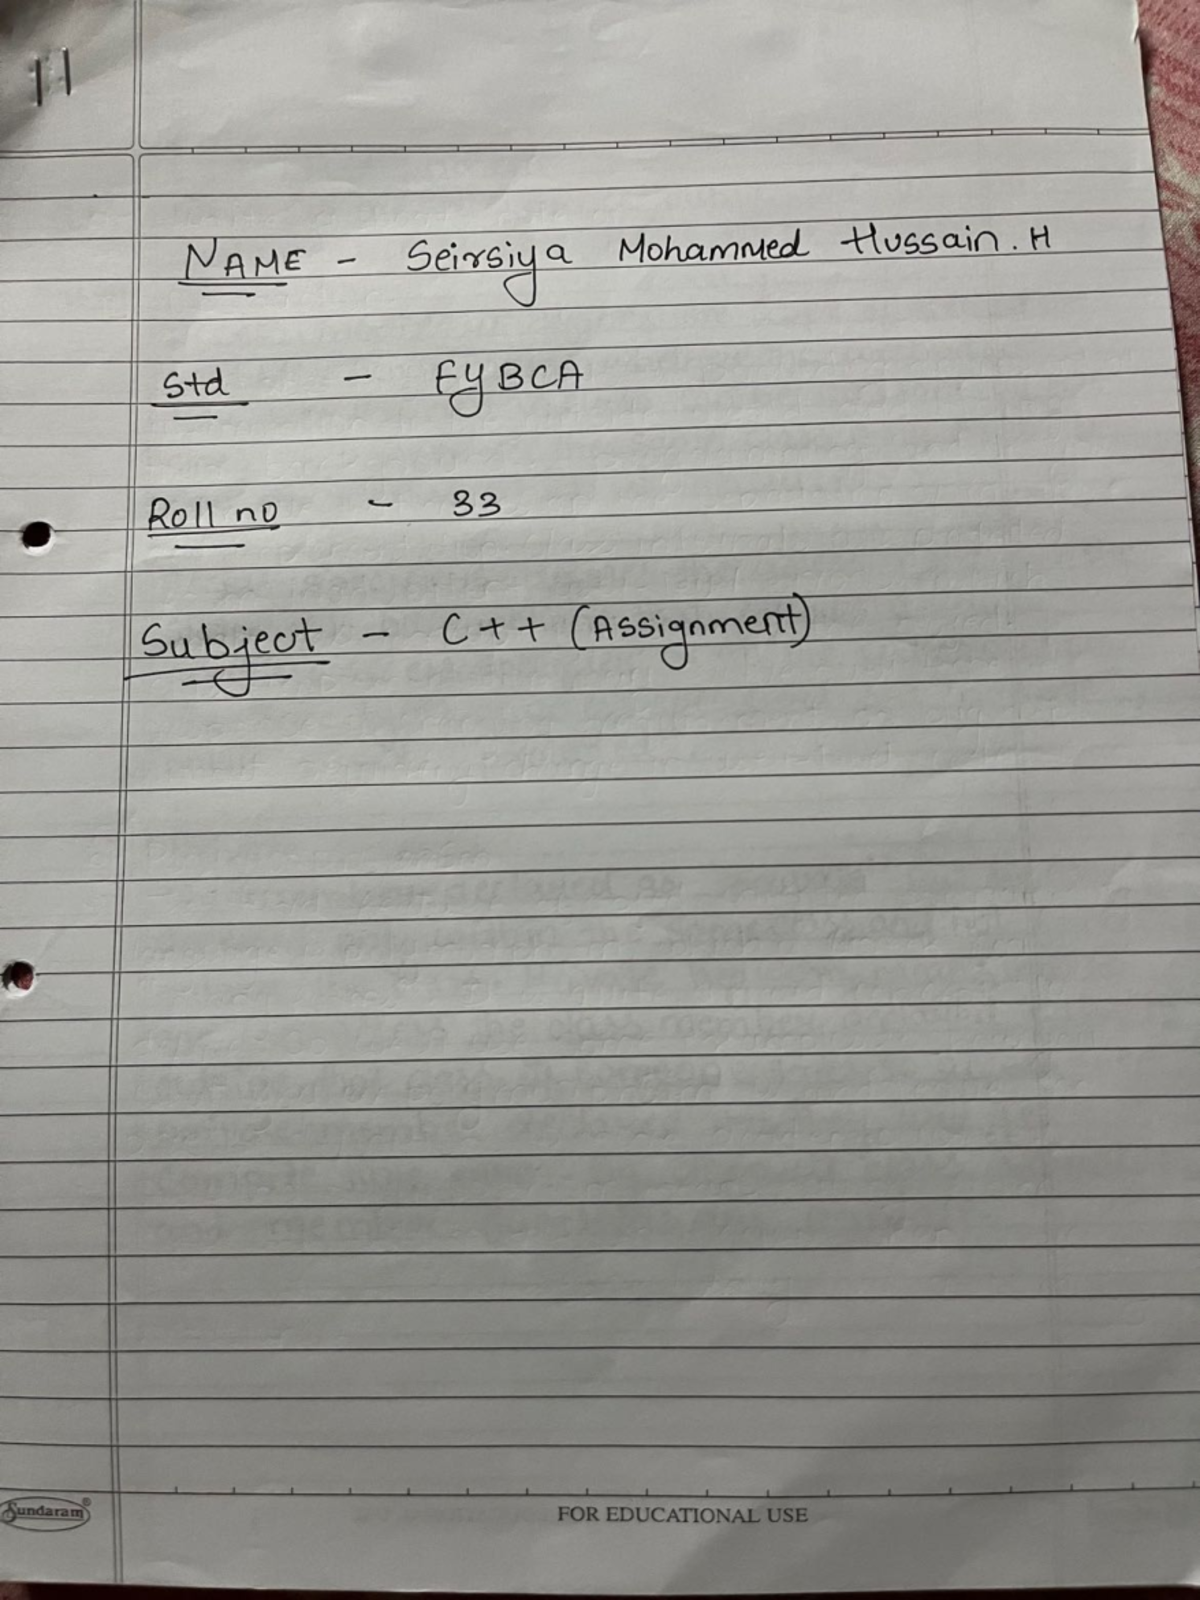 NAME - Seirsiya Mohammed Hussain. H
Std - FYBCA
Roll no - 33
Subject - C++ (Assignment)
Sundaram®
FOR EDUCATIONAL USE